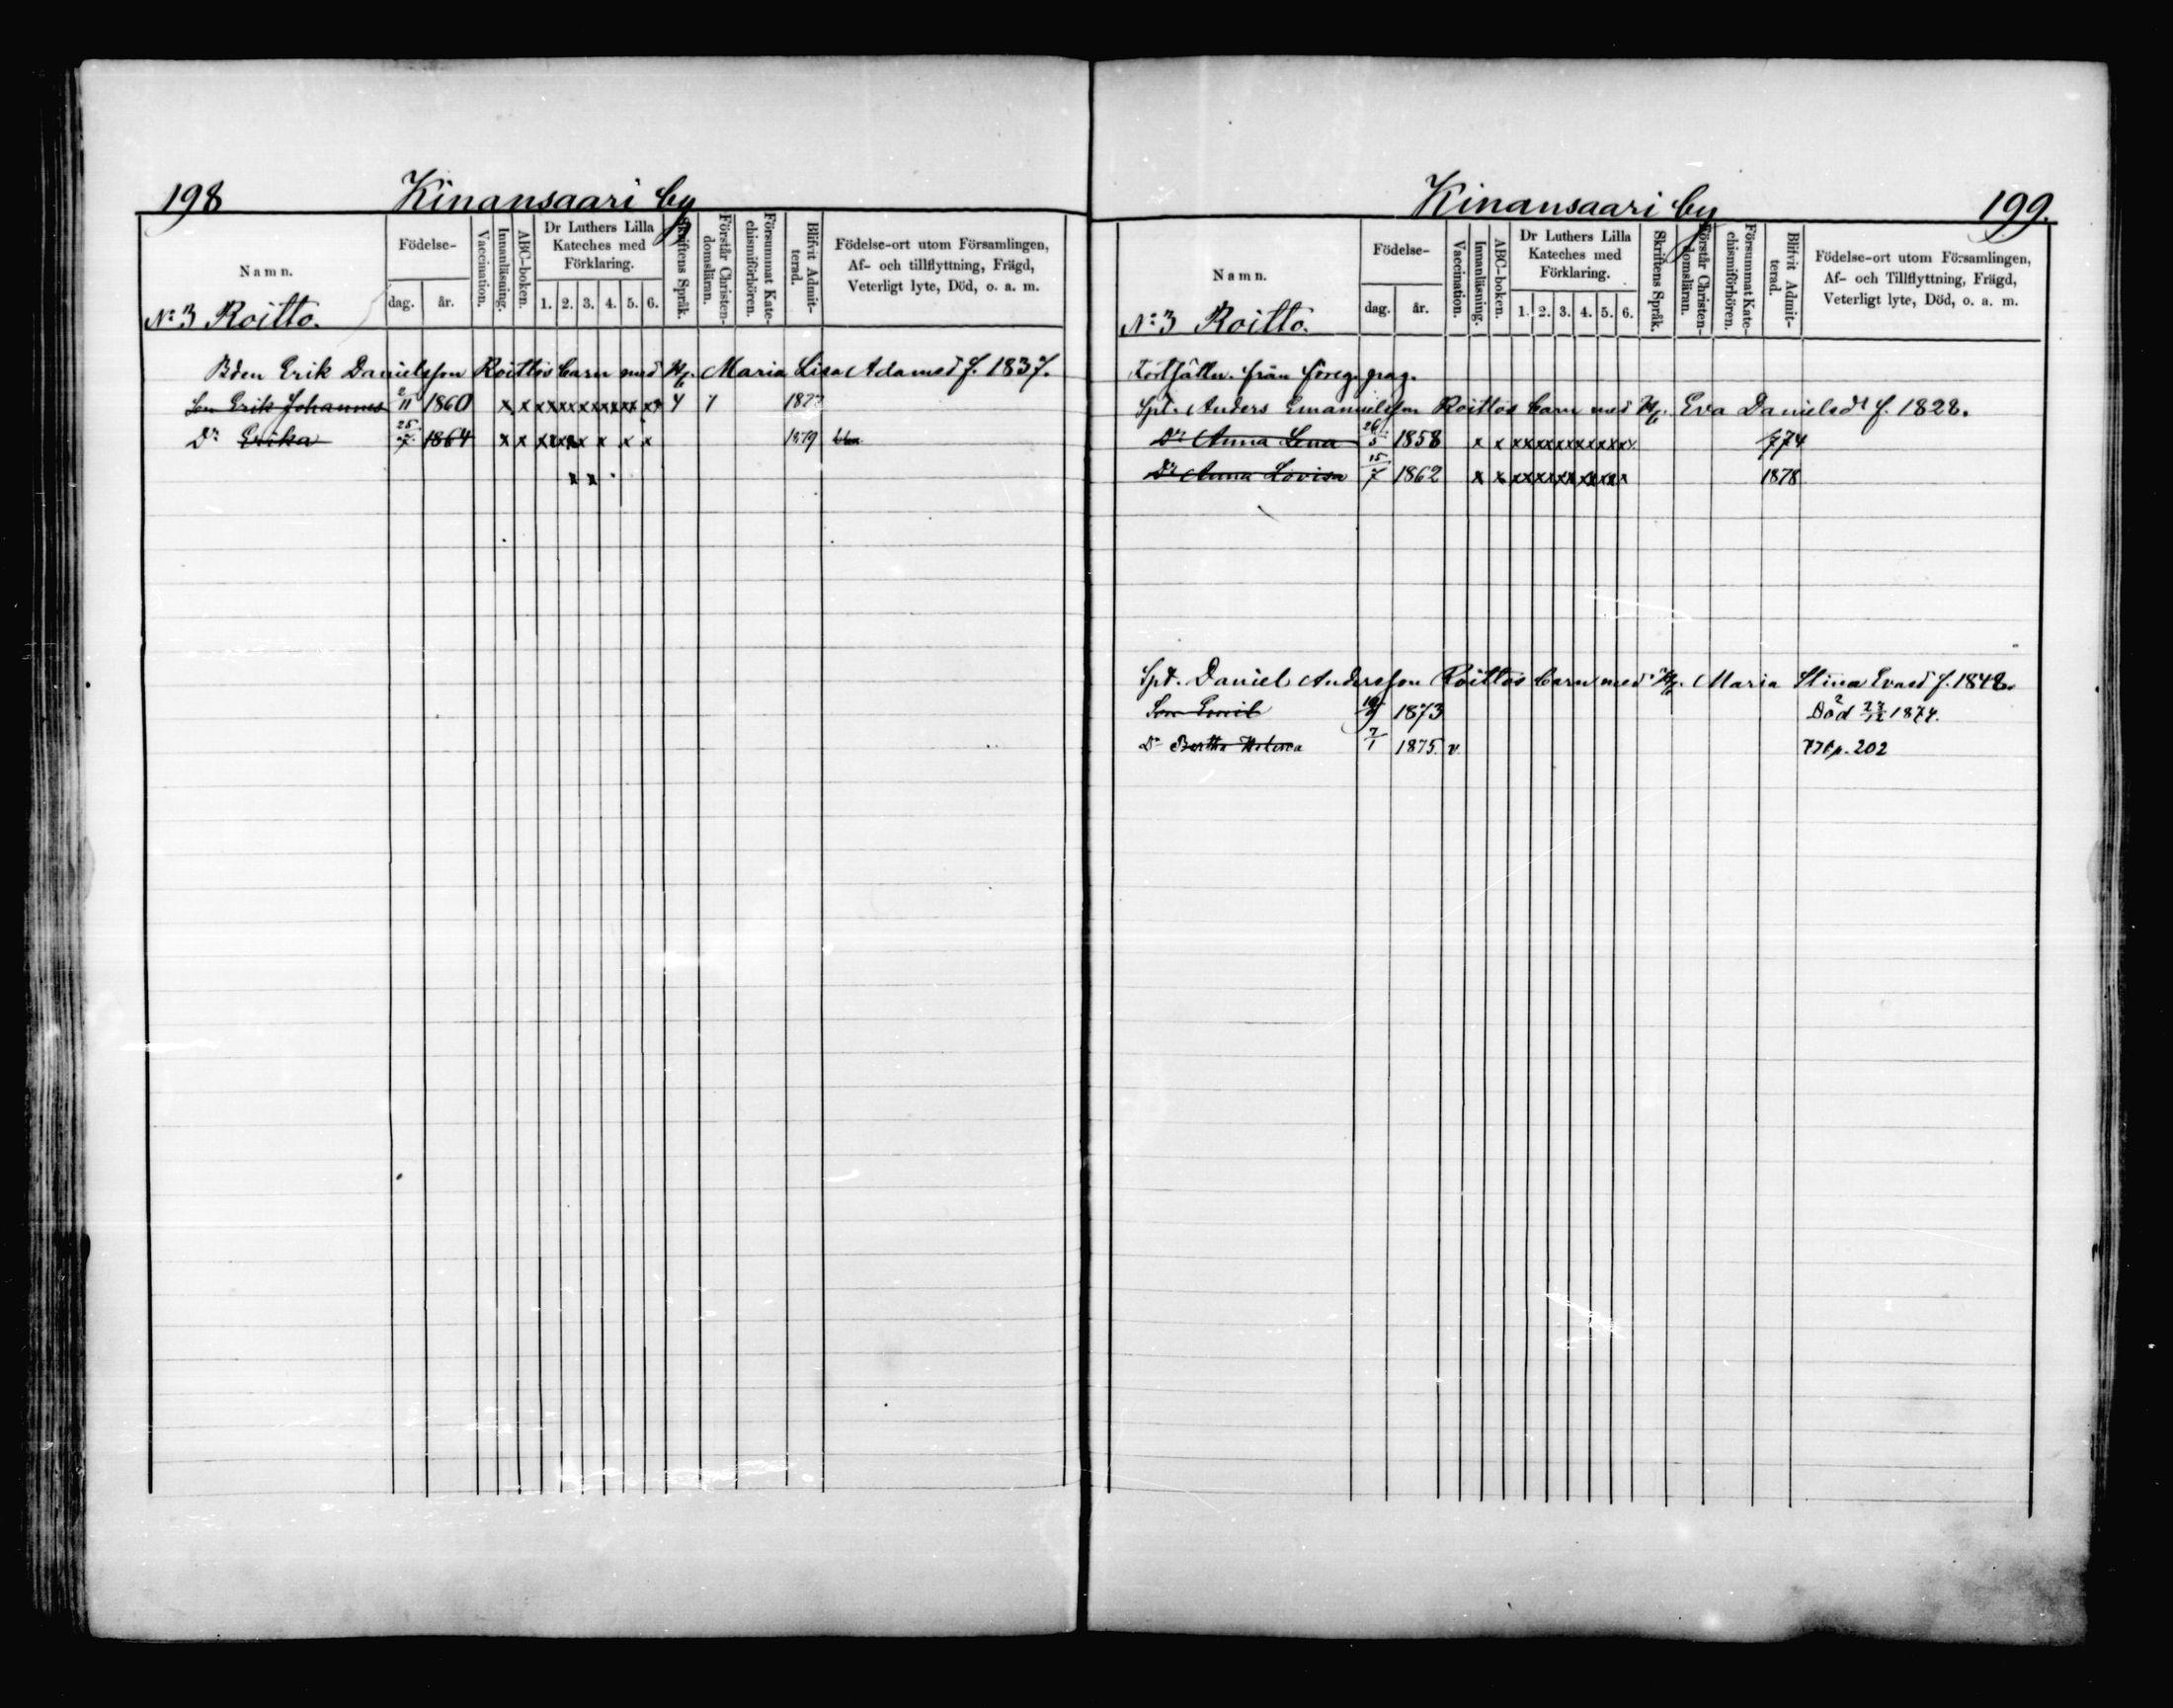 198 Kinansaari by
Namn. Födelse- dag. år. Vaccination. Innanläsning. ABC-boken. Dr Luthers Lilla Kateches med Förklaring. 1. 2. 3. 4. 5. 6. Skriftens Språk. Förstår Christendomsläran. Försummat Katechismiförhören. Blifvit Admitterad. Födelse-ort utom Församlingen, Af- och tillflyttning, Frägd, Veterligt lyte, Död, o. a. m.
No 3 Roitto.
Bden Erik Danielsson Roittos barn med H. Maria Lisa Adamsd f. 1837.
Son Erik Johannes 2/11 1860 x x x x x x x x x x x x
Dr Erika 25/7 1864 x x x x x x x x x 1879
x x
Kinansaari by 199.
Namn. Födelse- dag. år. Vaccination. Innanläsning. ABC-boken. Dr Luthers Lilla Kateches med Förklaring. 1. 2. 3. 4. 5. 6. Skriftens Språk. Förstår Christendomsläran. Försummat Katechismiförhören. Blifvit Admitterad. Födelse-ort utom Församlingen, Af- och Tillflyttning, Frägd, Veterligt lyte, Död, o. a. m.
No 3 Roitto.
Fortsättn. från föreg. pag.
Spt. Anders Emanuelsson Roittos barn med H. Eva Danielsdr f. 1828.
Dr Anna Lena 26/5 1858 x x x x x x x x x x x x 774
Dr Anna Lovisa 15/7 1862 x x x x x x x x x x x 1878
Spt. Daniel Andersson Roittos barn med H. Maria Stina Evasd f. 1848.
Son Emil 1873 Död 23/12 1874.
Dr Bertha 7/1 1875. v. p. 202